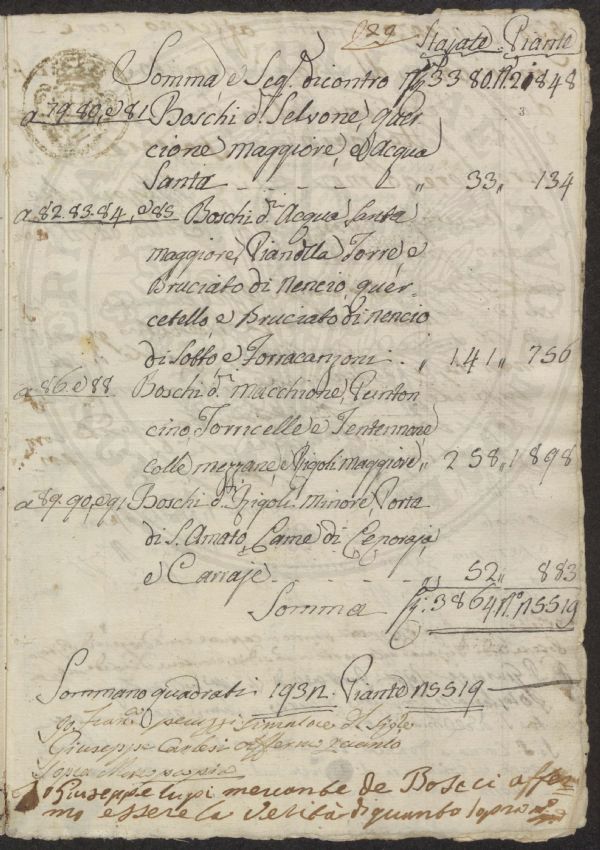 Stajate Piante
Somma, e Seg. dicontro 3380. N. 21848
a 79. 80, e 81 Boschi d. Selvone, Quer
cione maggiore, e Acqua
Santa 33 " 134
a 82. 83. 84, e 85 Boschi d. Acqua Santa
maggiore, Torre, e
Bruciato di Nencio, quer
cetello, e Bruciato di Nencio
di Sotto, e Torracanzoni " 141 " 756
a 86. e 88 Boschi d. Macchione, Punton
cino, Torricelle e Tentennone,
Colle mezzane, e Rigoli Maggiore " 258 " 1898
a 89. 90, e 91 Boschi d. Rigoli Minore, Porta
di S. Amato, Lame di
e Carraje " 52 " 883
Somma 3864. N.
Sommano quadrati 1932. Piante
Io Peruzzi
Giuseppe Carlesi affermo quanto
sopra
Io Giuseppe Lupi mercante de Bosci affer
mo essere la verità di quanto sopra